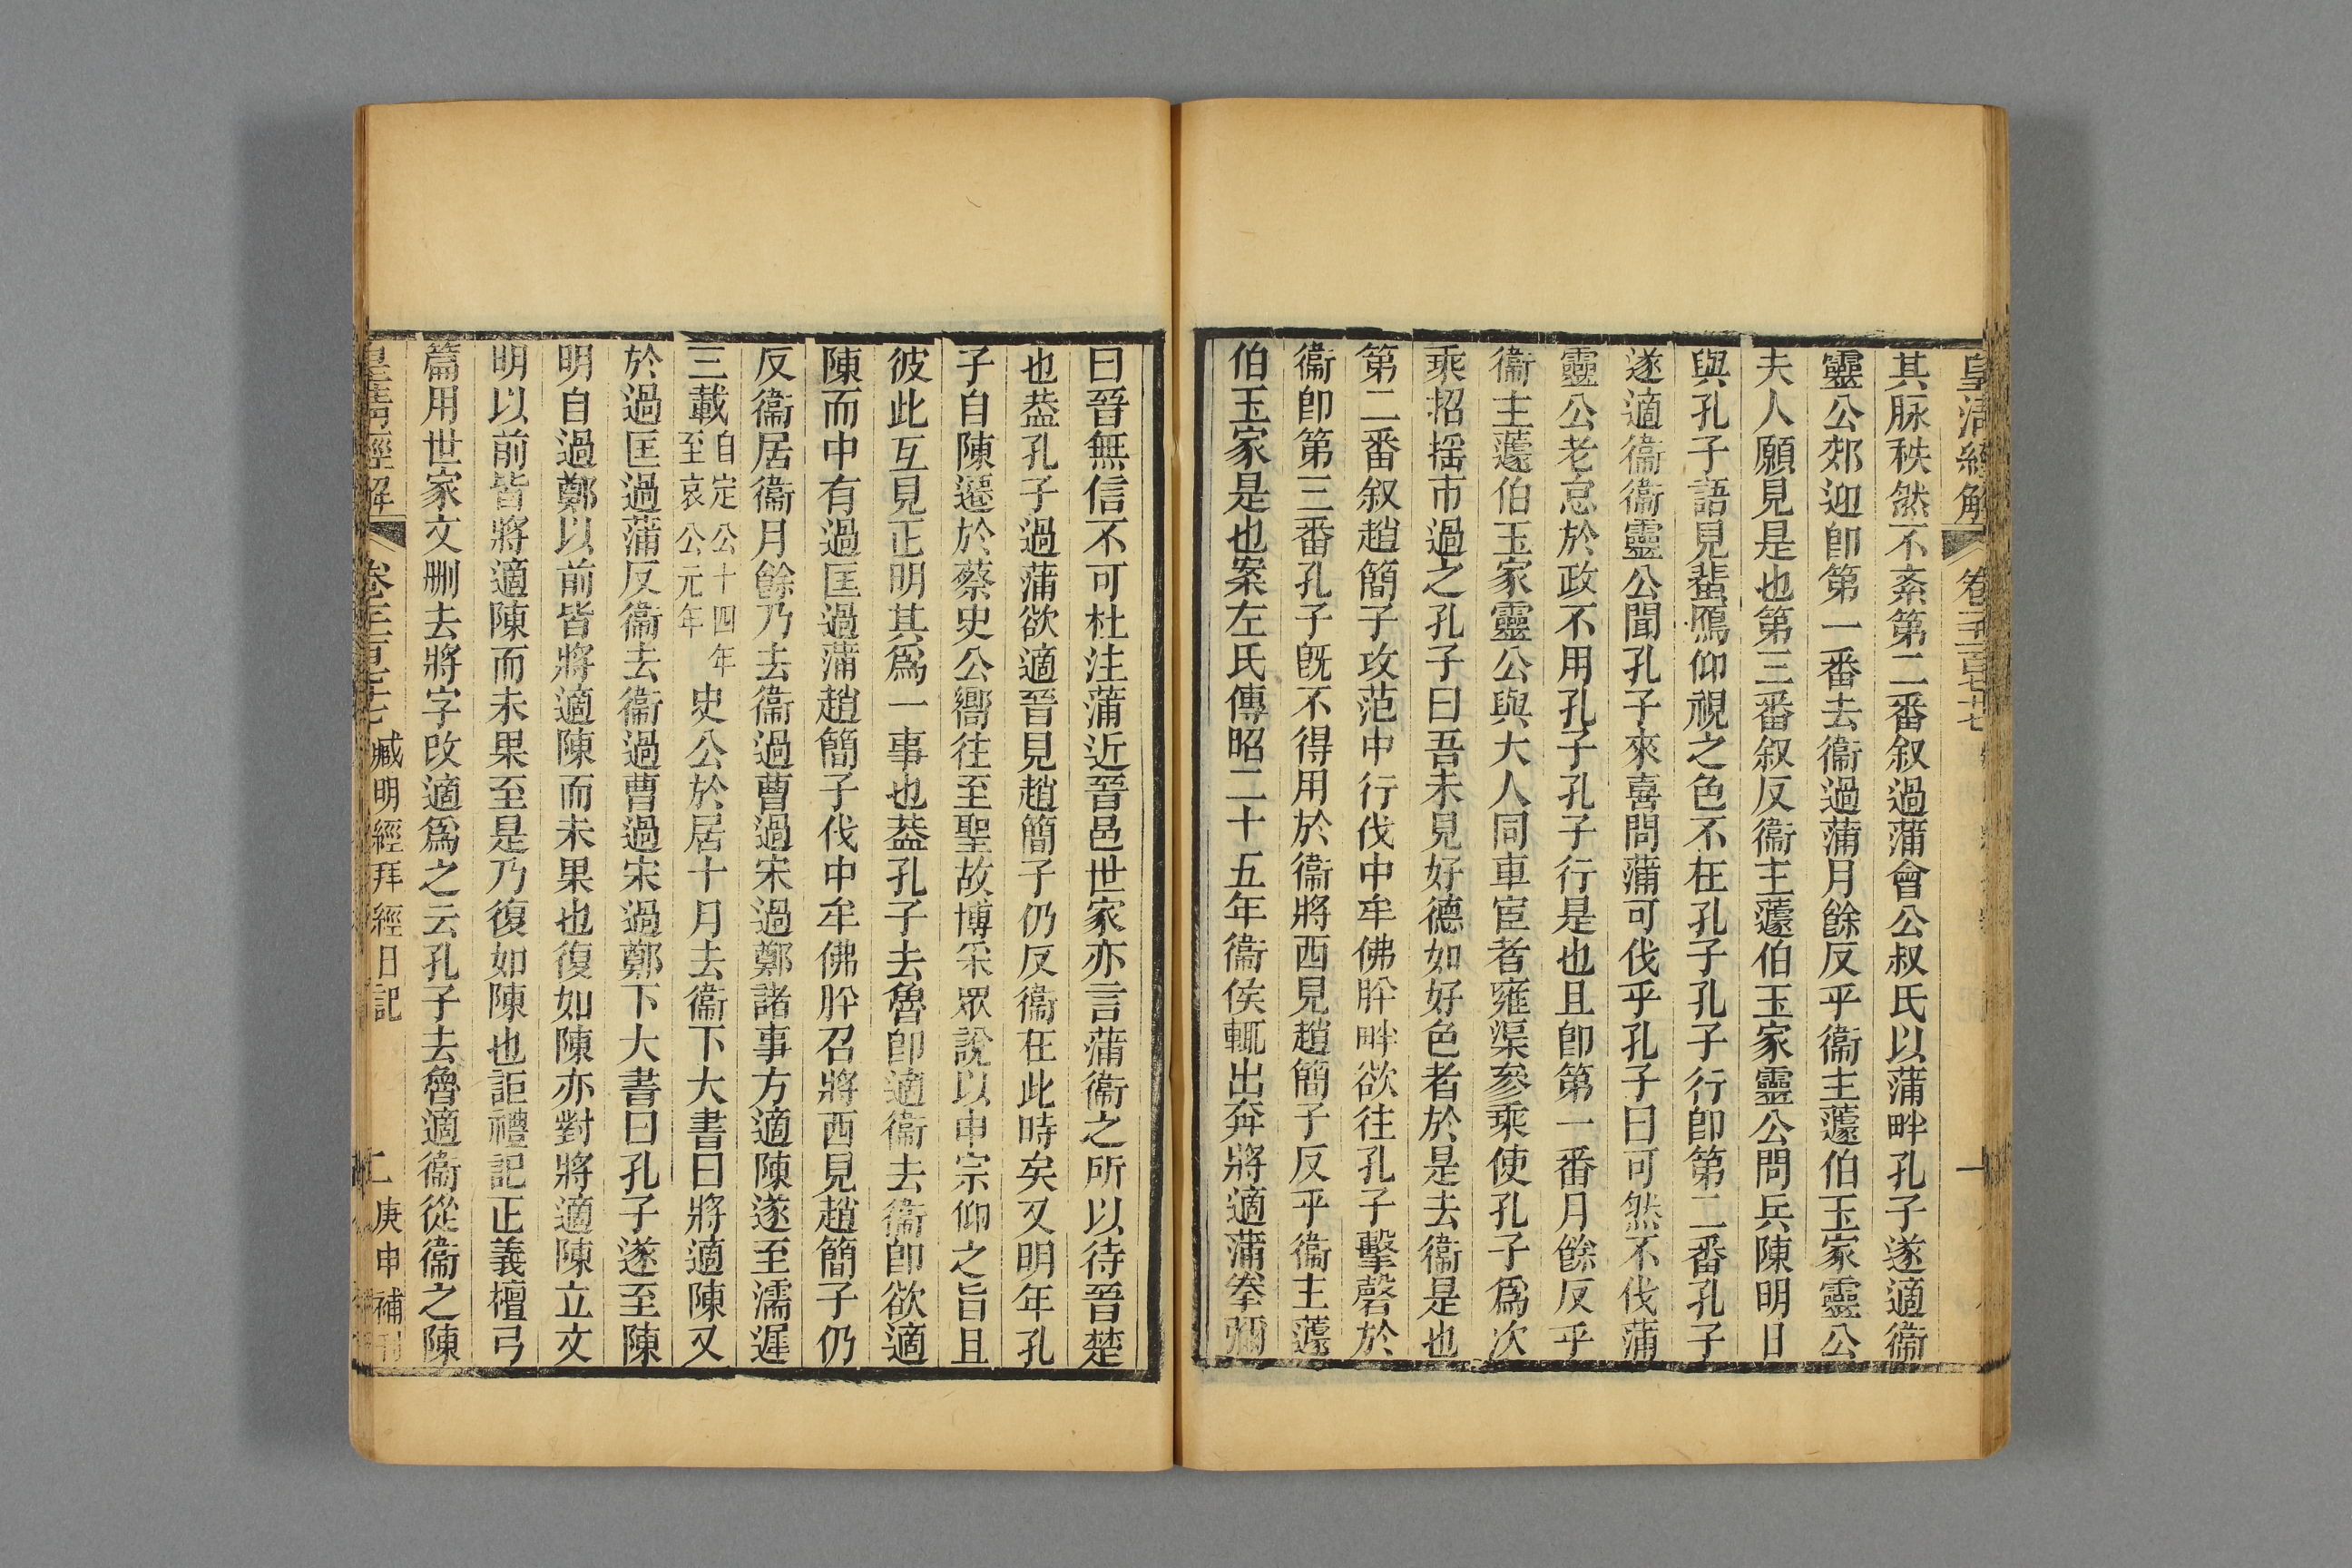 皇清經解 卷 一
其脉秩然不紊第二番叙過蒲會公叔氏以蒲畔孔子遂適衞
靈公郊迎卽第一番去衞過蒲月餘反乎衞主蘧伯玉家靈公
夫人願見是也第三番叙反衞主蘧伯玉家靈公問兵陳明日
與孔子語見蜚鴈仰視之色不在孔子孔子行卽第二番孔子
遂適衞衞靈公聞孔子來喜問蒲可伐乎孔子曰可然不伐蒲
靈公老怠於政不用孔子孔子行是也且卽第一番月餘反乎
衞主蘧伯玉家靈公與大人同車宦者雍渠參乘使孔子爲次
乘招摇市過之孔子曰吾未見好德如好色者於是去衞是也
第二番叙趙簡子攻范中行伐中牟佛肸畔欲往孔子擊磬於
衞卽第三番孔子旣不得用於衞將西見趙簡子反乎衞主蘧
伯玉家是也案左氏傳昭二十五年衞侯輒出奔將適蒲拳彌
曰晉無信不可杜注蒲近晉邑世家亦言蒲衞之所以待晉楚
也葢孔子過蒲欲適晉見趙簡子仍反衞在此時矣又明年孔
子自陳遷於蔡史公嚮往至聖故博采眾說以申宗仰之旨且
彼此互見正明其爲一事也葢孔子去魯卽適衞去衞卽欲適
陳而中有過匡過蒲趙簡子伐中牟佛肸召將西見趙簡子仍
反衞居衞月餘乃去衞過曹過宋過鄭諸事方適陳遂至濡遲
三載自定公十四年至哀公元年史公於居十月去衞下大書曰將適陳又
於過匡過蒲反衞去衞過曹過宋過鄭下大書曰孔子遂至陳
明自過鄭以前皆將適陳而未果也復如陳亦對將適陳立文
明以前皆將適陳而未果至是乃復如陳也詎禮記正義檀弓
篇用世家文刪去將字改適爲之云孔子去魯適衞從衞之陳
皇清經解 卷 臧明經拜經日記 二 庚申補刊